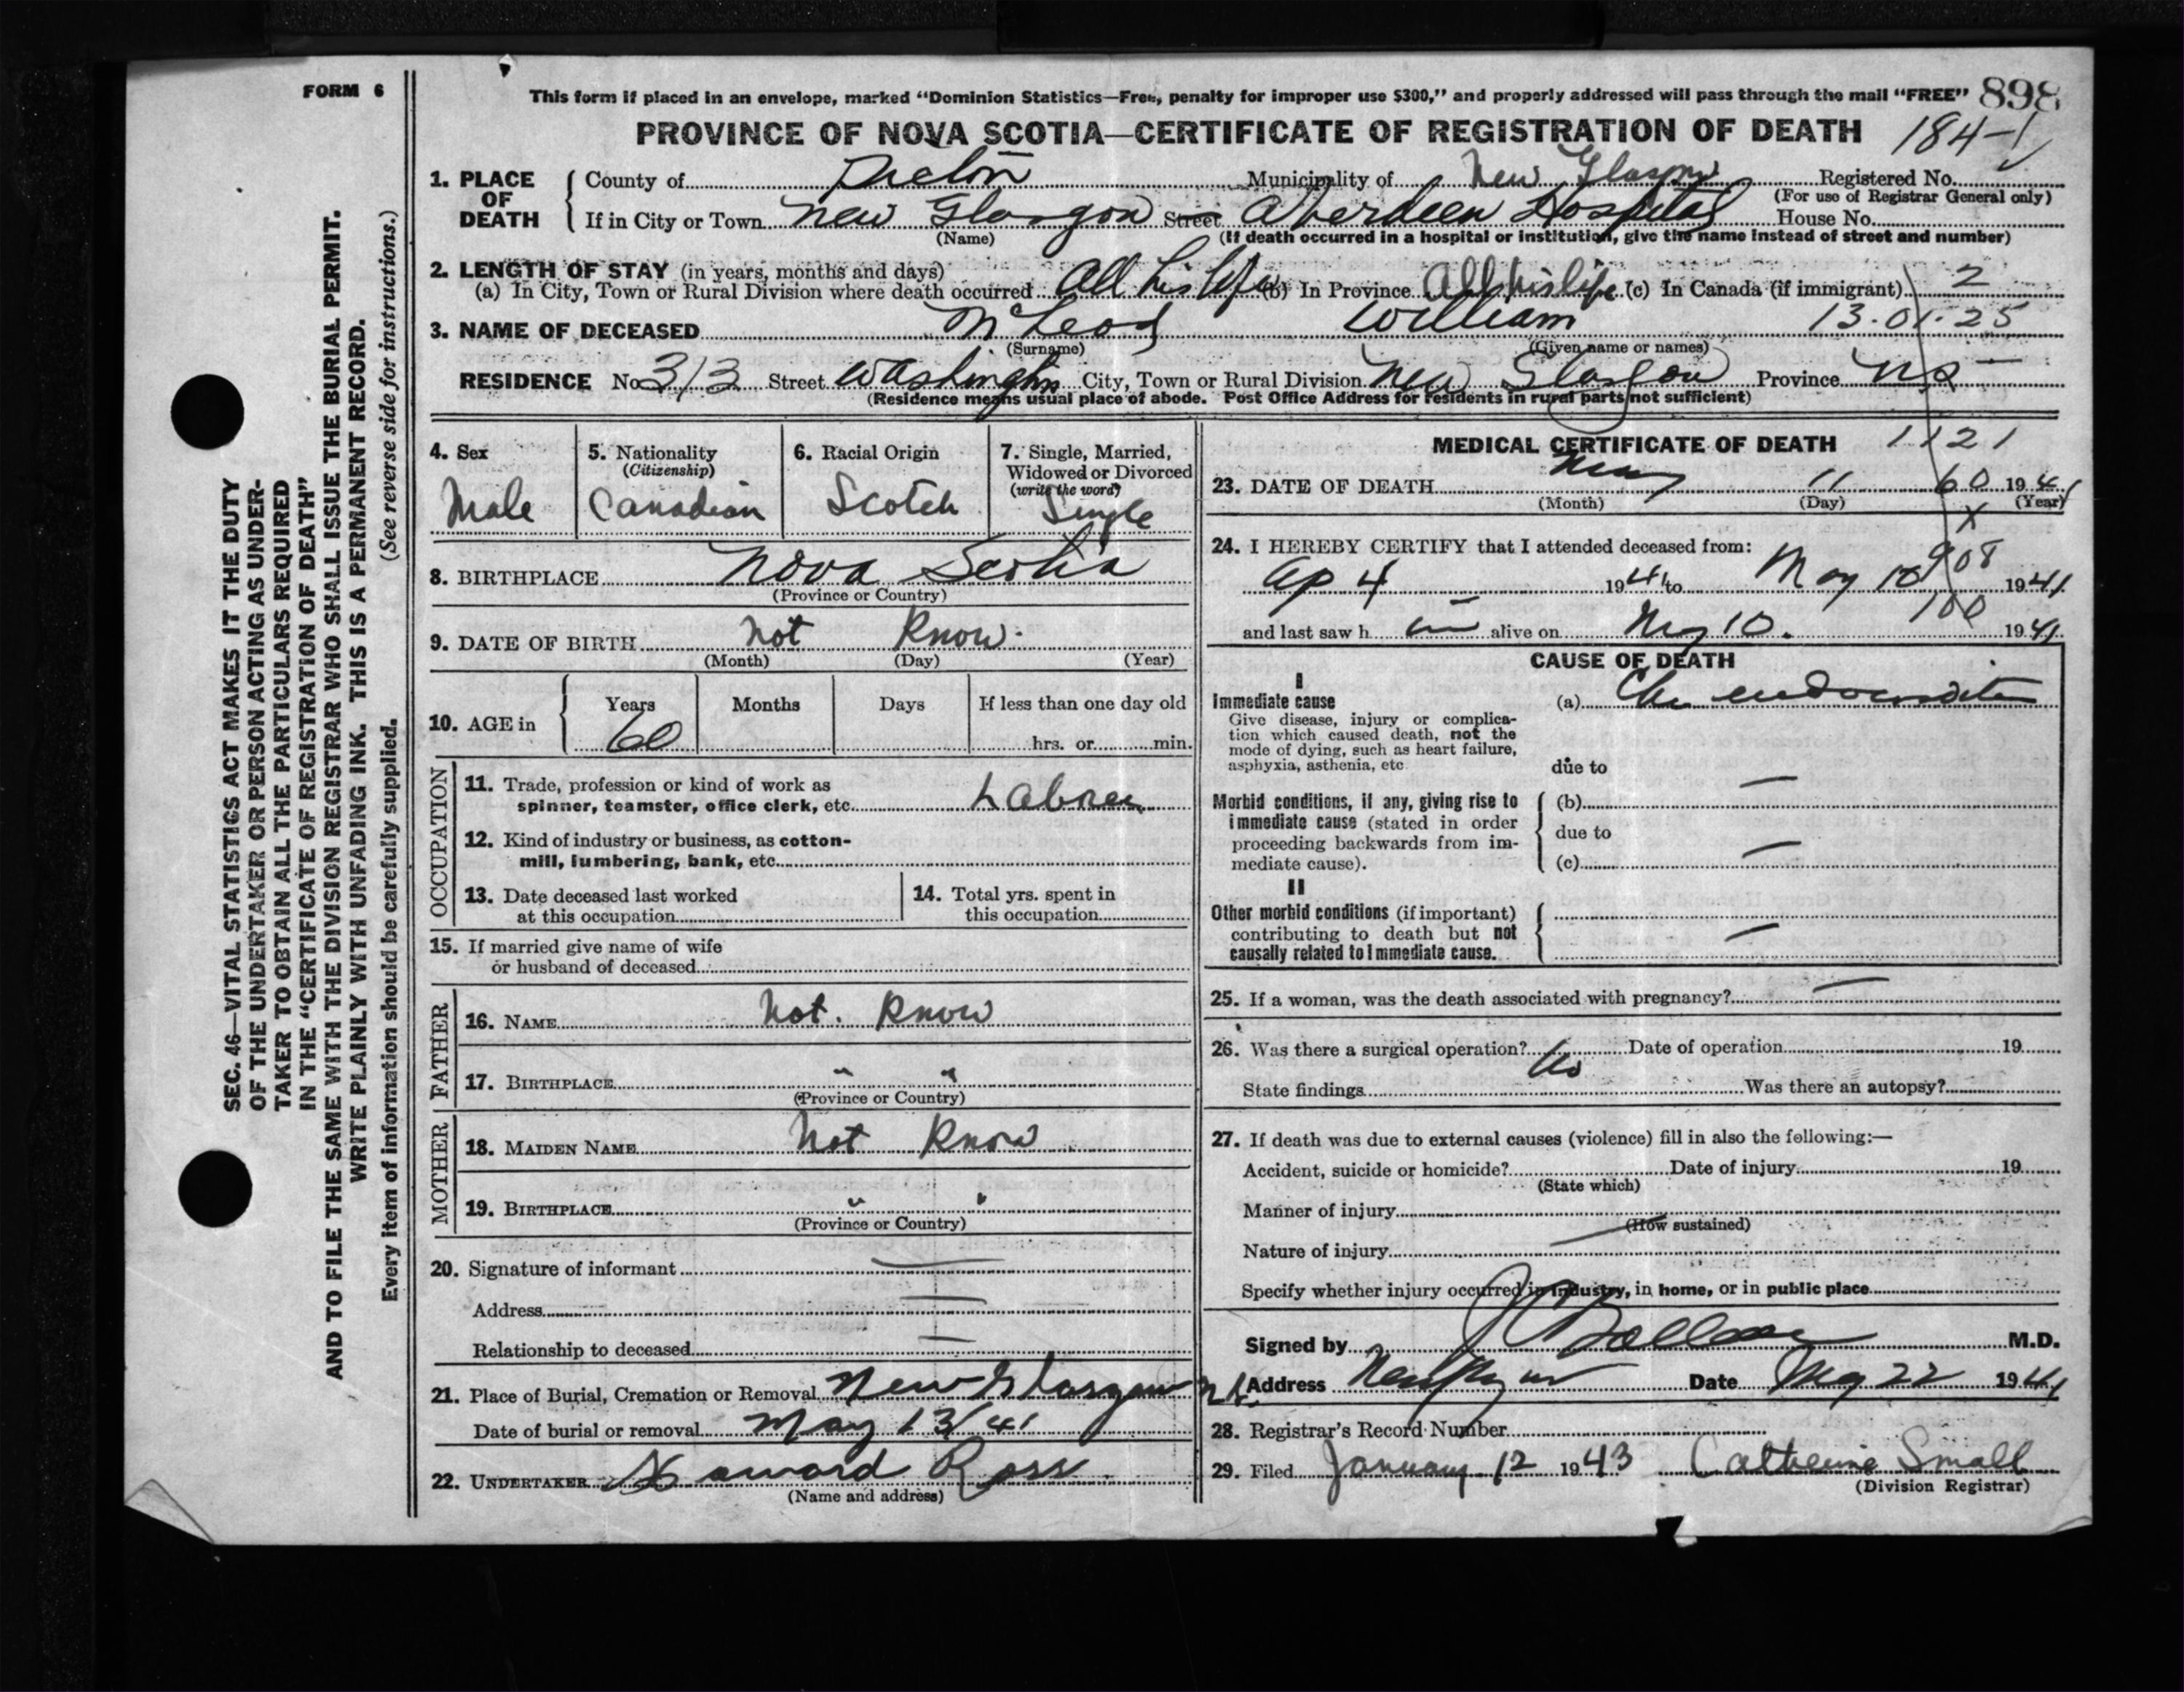 FORM 6
This form if placed in an envelope, marked “Dominion Statistics—Free, penalty for improper use $300,” and properly addressed will pass through the mail “FREE” 898
PROVINCE OF NOVA SCOTIA—CERTIFICATE OF REGISTRATION OF DEATH 184-1
1. PLACE OF DEATH
County of Pictou Municipality of New Glasgow Registered No.
(For use of Registrar General only)
If in City or Town New Glasgow Street Aberdeen Hospital House No.
(Name) (If death occurred in a hospital or institution, give the name instead of street and number)
2. LENGTH OF STAY (in years, months and days)
(a) In City, Town or Rural Division where death occurred All his life (b) In Province All his life (c) In Canada (if immigrant) 2
3. NAME OF DECEASED McLeod William 13-01-25
(Surname) (Given name or names)
RESIDENCE No. 313 Street Washington City, Town or Rural Division New Glasgow Province NS
(Residence means usual place of abode. Post Office Address for residents in rural parts not sufficient)
4. Sex
Male
5. Nationality
(Citizenship)
Canadian
6. Racial Origin
Scotch
7. Single, Married,
Widowed or Divorced
(write the word)
Single
8. BIRTHPLACE Nova Scotia
(Province or Country)
9. DATE OF BIRTH Not Know.
(Month) (Day) (Year)
10. AGE in
Years Months Days If less than one day old
60 hrs. or min.
OCCUPATION
11. Trade, profession or kind of work as
spinner, teamster, office clerk, etc. Laborer
12. Kind of industry or business, as cotton-
mill, lumbering, bank, etc.
13. Date deceased last worked
at this occupation
14. Total yrs. spent in
this occupation
15. If married give name of wife
or husband of deceased
FATHER
16. NAME Not. Know
17. BIRTHPLACE " "
(Province or Country)
MOTHER
18. MAIDEN NAME Not Know
19. BIRTHPLACE " "
(Province or Country)
20. Signature of informant —
Address —
Relationship to deceased —
21. Place of Burial, Cremation or Removal New Glasgow N.S.
Date of burial or removal May 13/41
22. UNDERTAKER Howard Ross.
(Name and address)
MEDICAL CERTIFICATE OF DEATH 1121
23. DATE OF DEATH May 11 60 1941
(Month) (Day) (Year)
x
24. I HEREBY CERTIFY that I attended deceased from:
Ap 4 1941 to May 10 908 1941
100
and last saw h im alive on May 10. 1941
CAUSE OF DEATH
I
Immediate cause
Give disease, injury or complica-
tion which caused death, not the
mode of dying, such as heart failure,
asphyxia, asthenia, etc.
(a) Chr endocarditis
due to
—
Morbid conditions, if any, giving rise to
immediate cause (stated in order
proceeding backwards from im-
mediate cause).
(b)
due to
—
(c)
II
Other morbid conditions (if important)
contributing to death but not
causally related to immediate cause.
—
25. If a woman, was the death associated with pregnancy? —
26. Was there a surgical operation? No Date of operation 19
State findings Was there an autopsy?
27. If death was due to external causes (violence) fill in also the following:—
Accident, suicide or homicide? Date of injury 19
(State which)
Manner of injury
(How sustained)
Nature of injury
Specify whether injury occurred in industry, in home, or in public place
Signed by M.D.
Address New Glasgow Date May 22 1941
28. Registrar's Record Number
29. Filed January 12 1943 Catherine Small
(Division Registrar)
SEC. 46—VITAL STATISTICS ACT MAKES IT THE DUTY
OF THE UNDERTAKER OR PERSON ACTING AS UNDER-
TAKER TO OBTAIN ALL THE PARTICULARS REQUIRED
IN THE “CERTIFICATE OF REGISTRATION OF DEATH”
AND TO FILE THE SAME WITH THE DIVISION REGISTRAR WHO SHALL ISSUE THE BURIAL PERMIT.
WRITE PLAINLY WITH UNFADING INK. THIS IS A PERMANENT RECORD.
Every item of information should be carefully supplied. (See reverse side for instructions.)